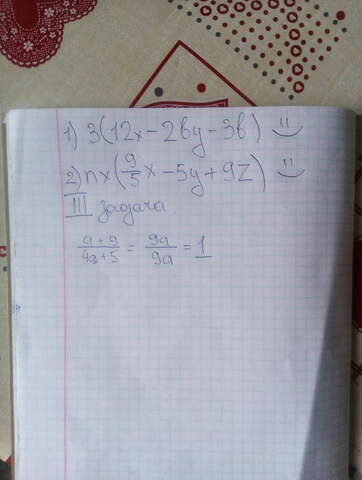 1) 3(12x-2by-3b)
2) nx(9/5x-5y+9z)
III задача
a+9/4a+5 = 9a/9a = 1